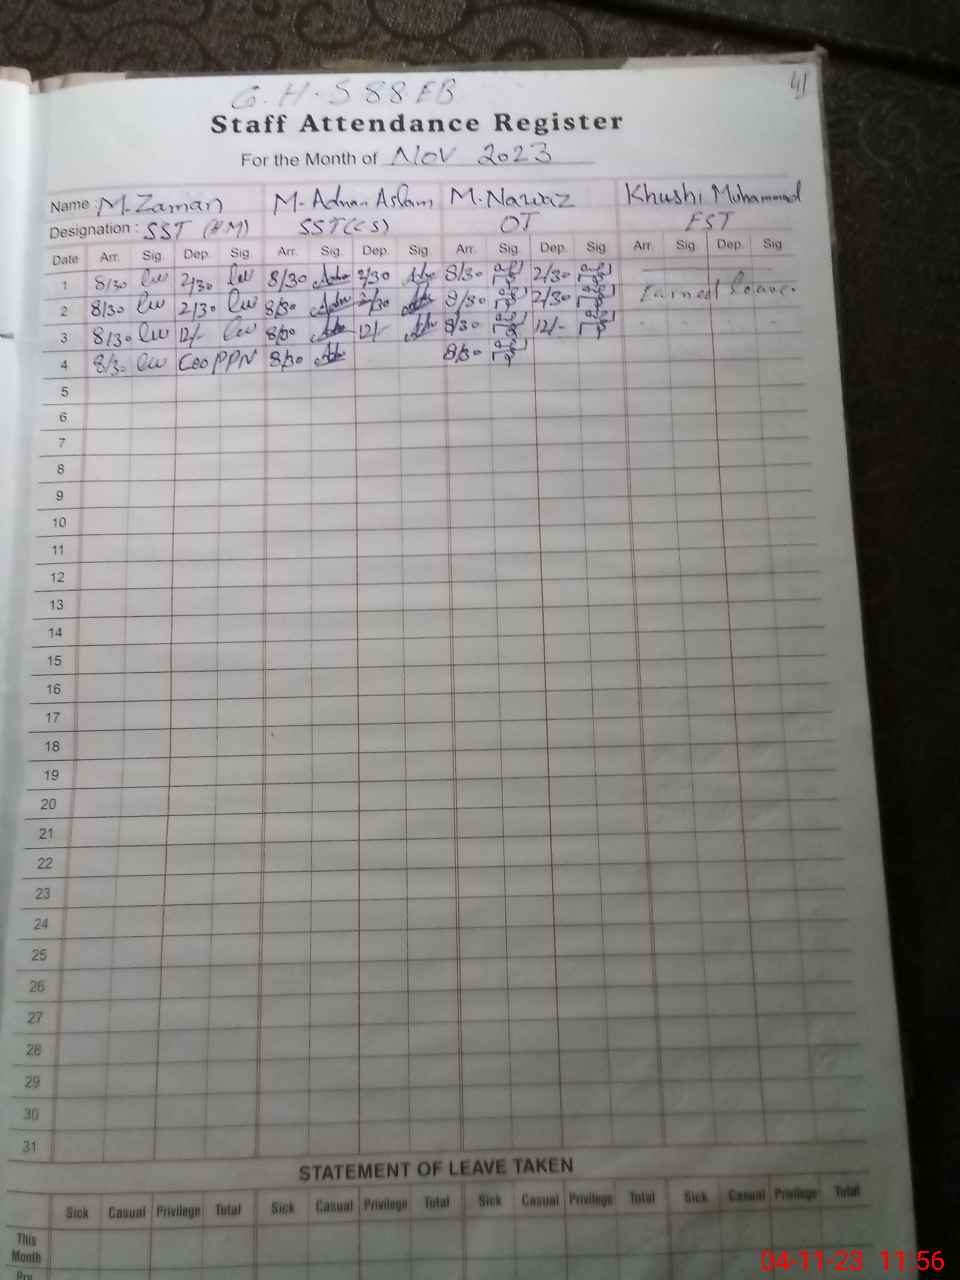 41
G.H.S 88 EB
Staff Attendance Register
For the Month of Nov 2023
Name : M. Zaman M. Adnan Aslam M. Nawaz Khushi Muhammad
Designation : SST (HM) SST (CS) OT EST
Date Arr. Sig. Dep. Sig Arr. Sig. Dep. Sig Arr. Sig. Dep. Sig Arr. Sig Dep. Sig
1 8/30 2/30 8/30 2/30 8/30 2/30
2 8/30 2/30 8/30 2/30 8/30 2/30 Earned leave.
3 8/30 12/- 8/30 12/- 8/30 12/-
4 8/30 CEO PPN 8/30 8/30
5
6
7
8
9
10
11
12
13
14
15
16
17
18
19
20
21
22
23
24
25
26
27
28
29
30
31
STATEMENT OF LEAVE TAKEN
Sick Casual Privilege Total Sick Casual Privilege Total Sick Casual Privilege Total Sick Casual Privilege Total
This
Month
04-11-23 11:56